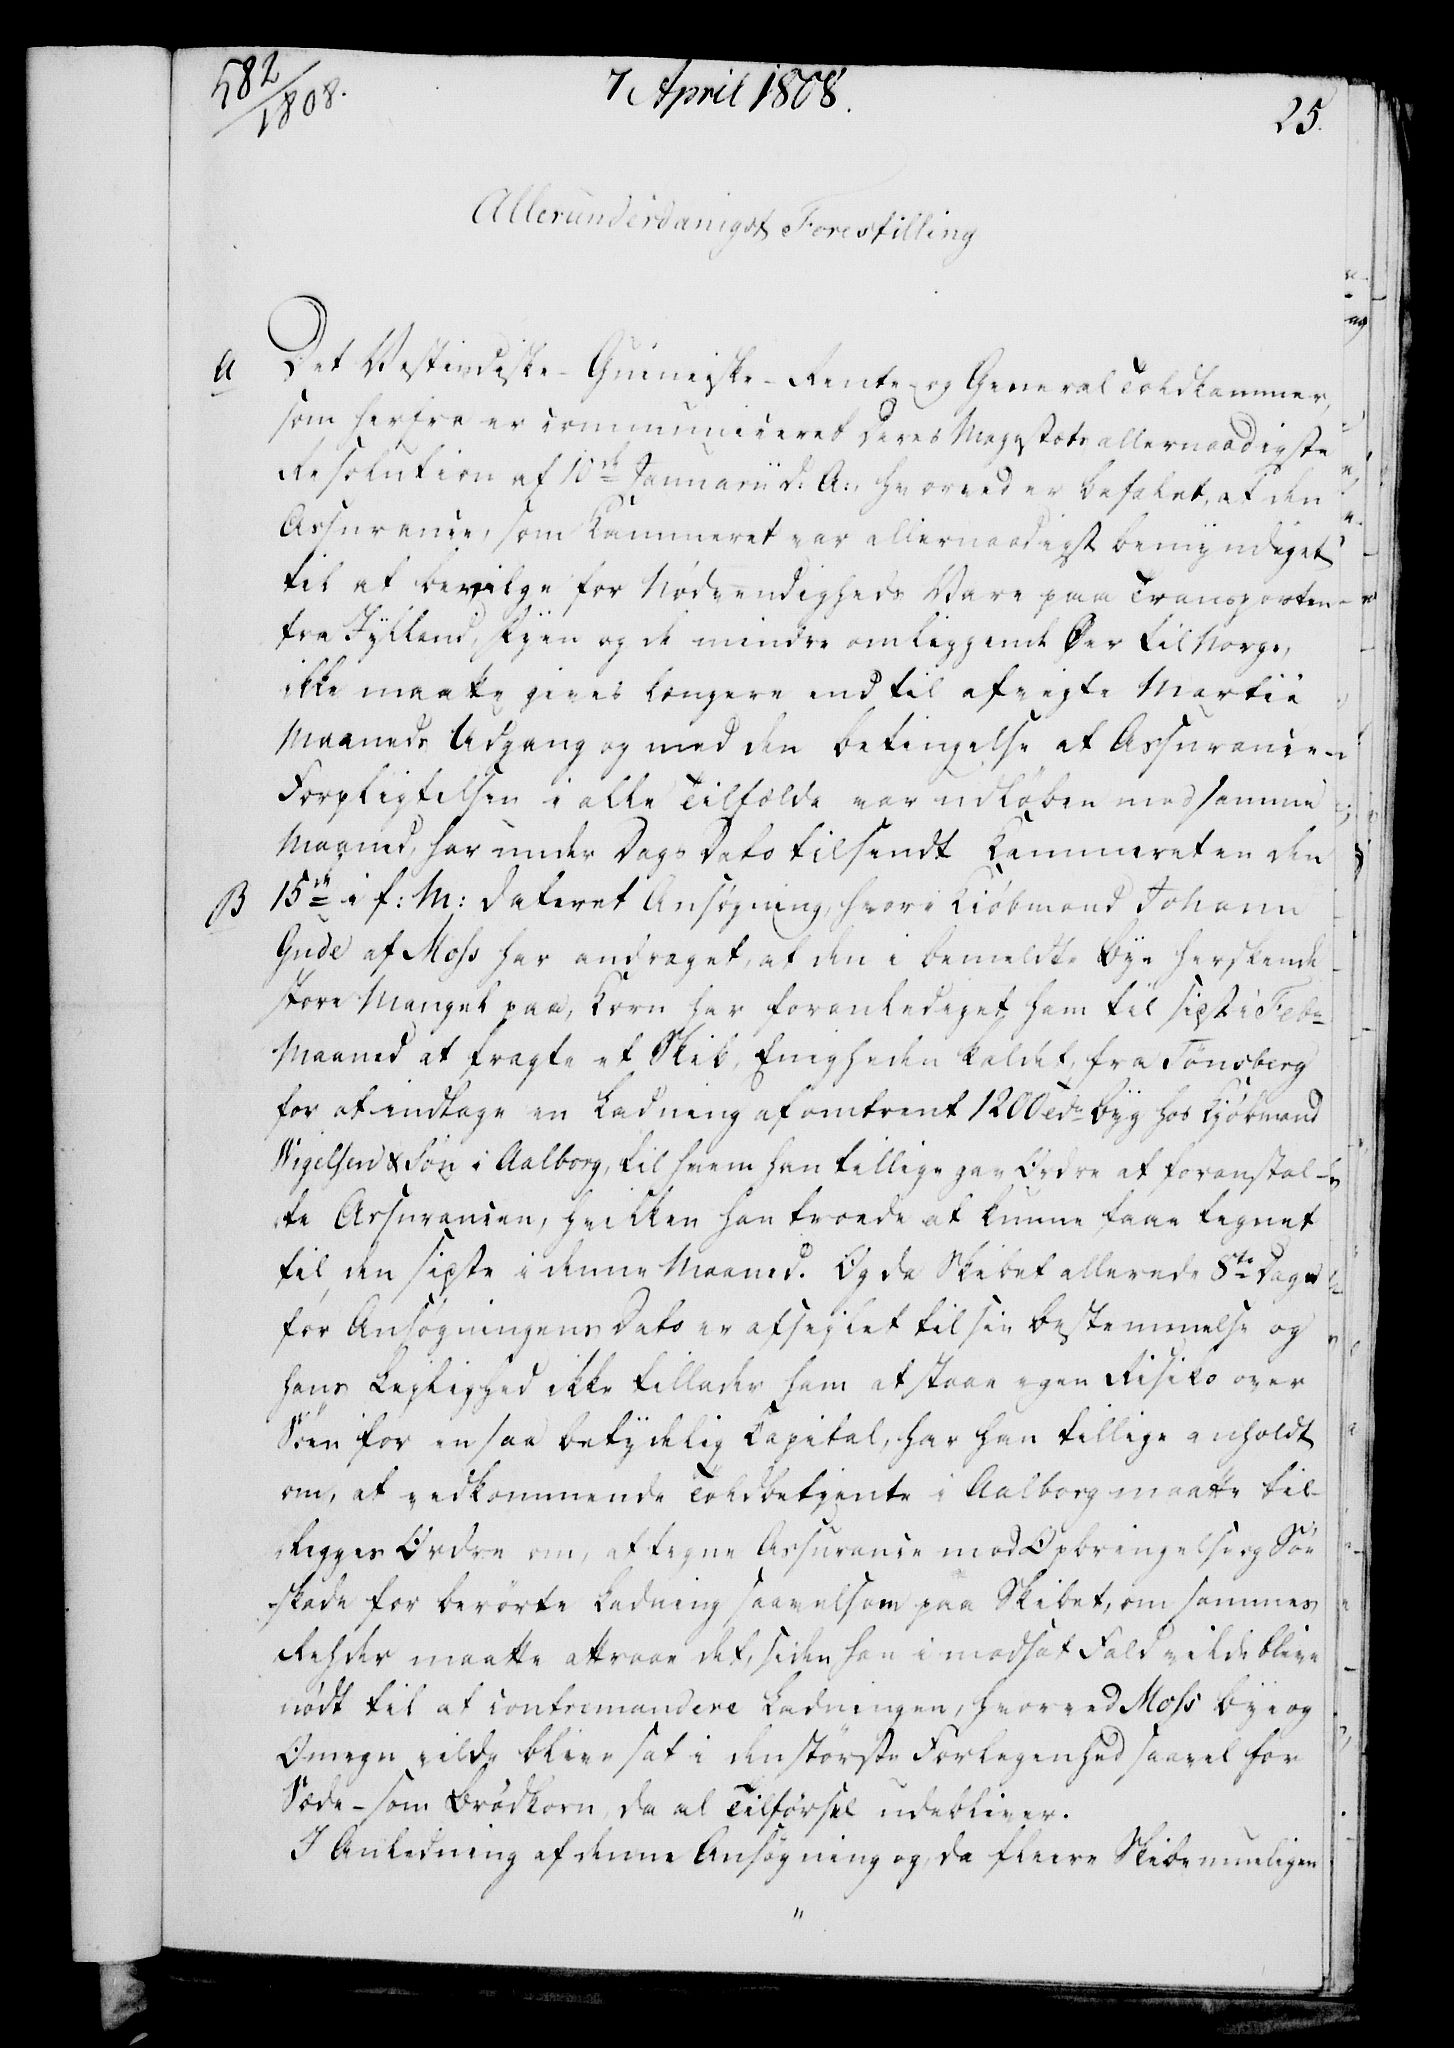 582/1808.
7 April 1808.
25.
Allerunderdanigst Forestilling
A Det Vestindiske-Guineiske-Rente- og General Toldkammer,
som herfra er communiceret Deres Majestæts allernaadigste
Resolution af 10de Januarii d: A:, hvorved er befalet, at den
Assurance, som Kammeret var allernaadigst bemyndiget
til at bevilge for Nødvendigheds Vare paa Transporten
fra Jylland, Fyen og de mindre omliggende Øer til Norge,
ikke maatte gives længere end til afvigte Martii
Maaneds Udgang og med den betingelse at Assurance-
Forpligtelsen i alle Tilfælde var udløben med samme
Maaned, har under Dags Dato tilsendt Kammeret en den
B 15de i f: M: dateret Ansøgning, hvori Kiöbmand Johann
Gude af Moss har andraget, at den i bemeldte Bye herskende
store Mangel paa Korn har foranlediget ham til sidst i Febr
Maaned at fragte et Skib, Enigheden kaldet, fra Tönsberg
for at indtage en Ladning af omtrent 1200 Tdr Byg hos Kjöbmand
Wigelsen & Søn i Aalborg, til hvem han tillige gav Ordre at foranstal-
te Assurancen, hvilken han troede at kunne faae tegnet
til den sidste i denne Maaned. Og da Skibet allerede 8te Dage
før Ansøgningens Dato er afseglet til sin bestemmelse og
hans Leylighed ikke tillader ham at staae egen Risiko over
Søen for en saa betydelig Capital, har han tillige anholdt
om, at vedkommende Toldbetjente i Aalborg maatte til-
lægges Ordre om, at tegne Assurance mod Opbringelse og Søe
skade for berørte Ladning saavelsom paa Skibet, om sammes
Rehder maatte attraae det, siden han i modsat Fald vilde blive
nødt til at contremandere Ladningen, hvorved Moss Bye og
Omegn vilde blive sat i den største Forlegenhed saavel for
Sæde- som Brødkorn, da al Tilførsel udebliver.
I Anledning af denne Ansøgning og, da fleere Skibe mueligen
"